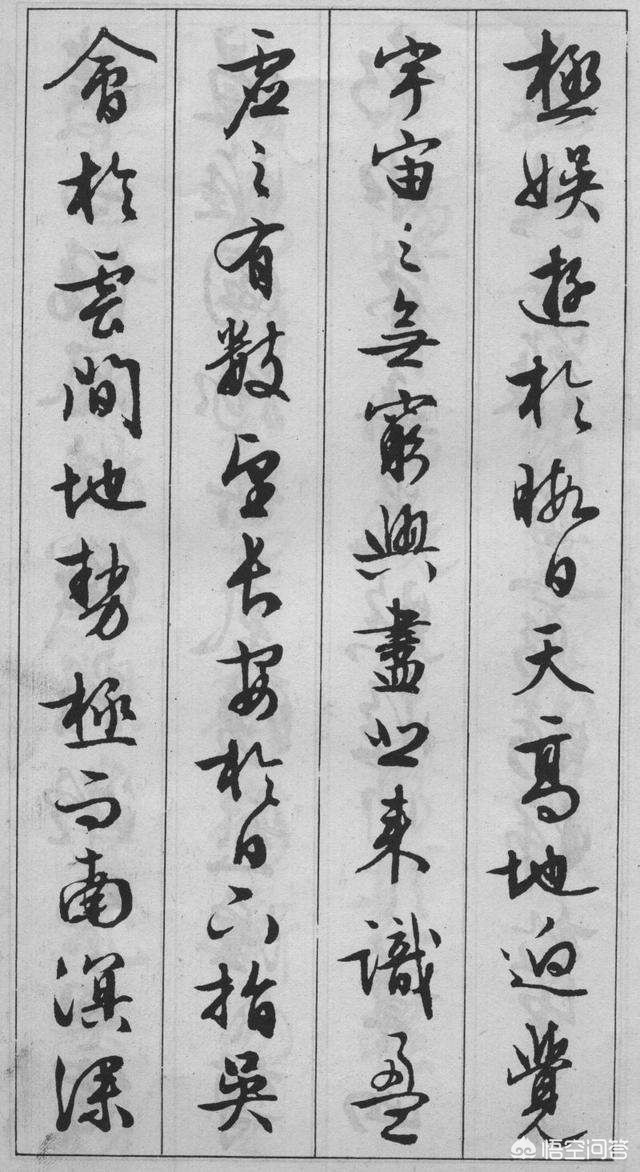 極娛遊於暇日天高地迥覺
宇宙之無窮興盡悲來識盈
虛之有數望長安於日下指吳
會於雲間地勢極而南溟深
悟空问答